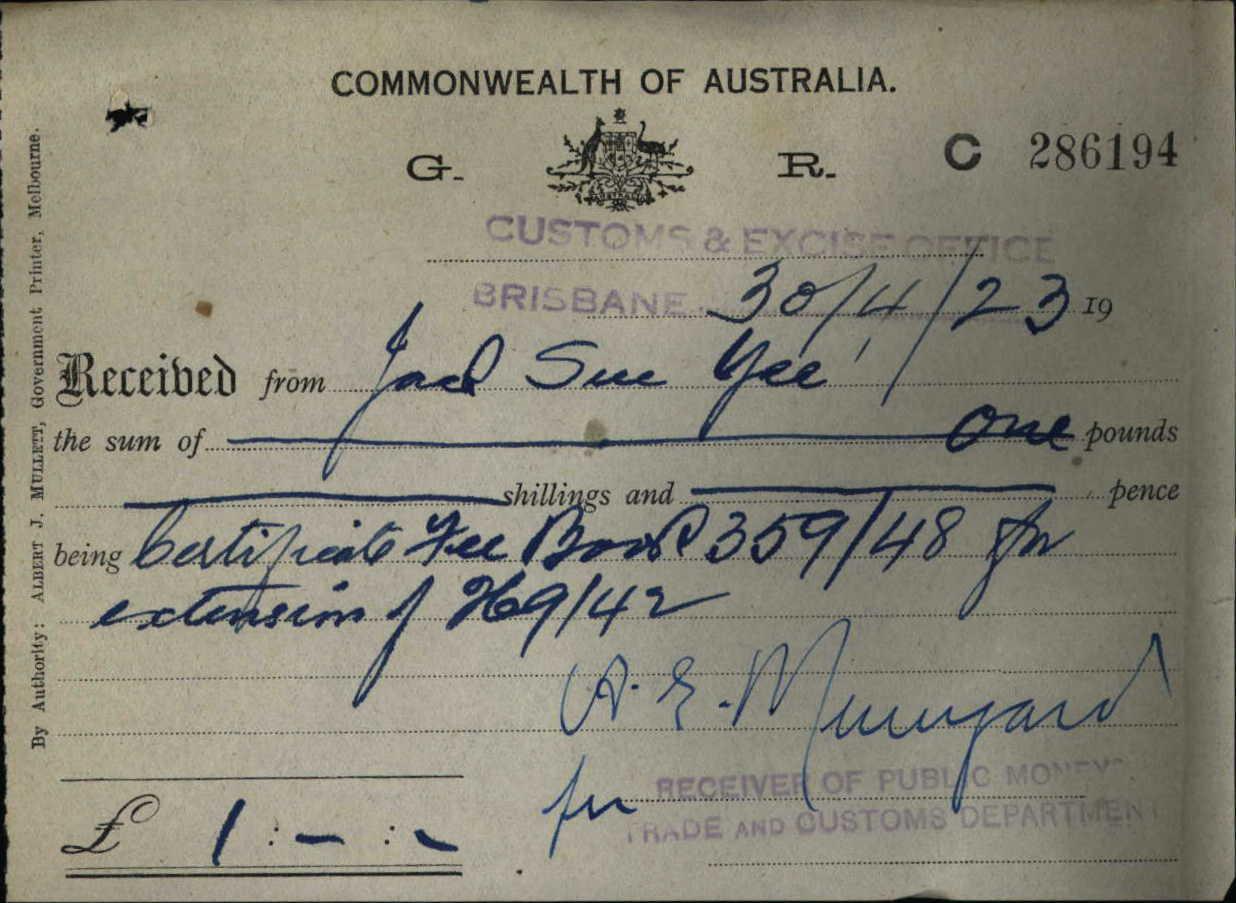 COMMONWEALTH OF AUSTRALIA.
G. R. C 286194
CUSTOMS & EXCISE OFFICE
BRISBANE 30/4/23 19
Received from Jack Sue Yee
the sum of One pounds
shillings and pence
being Certificate Fee Book 359/48 for
extension of 269/42
A. E.
for RECEIVER OF PUBLIC MONEYS
TRADE AND CUSTOMS DEPARTMENT
£ 1 : - : -
By Authority: ALBERT J. MULLETT, Government Printer, Melbourne.